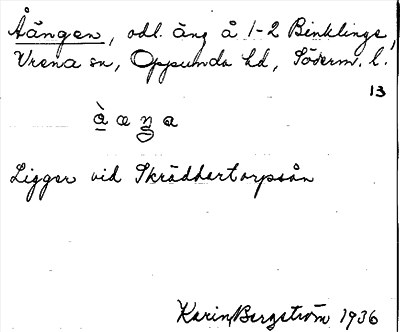 Åängen, odl. äng å 1-2 Binklinge,
Vrena sn, Oppunda hd, Söderm. l.
13
Ligger vid Skräddartorpsån
Karin Bergström 1936